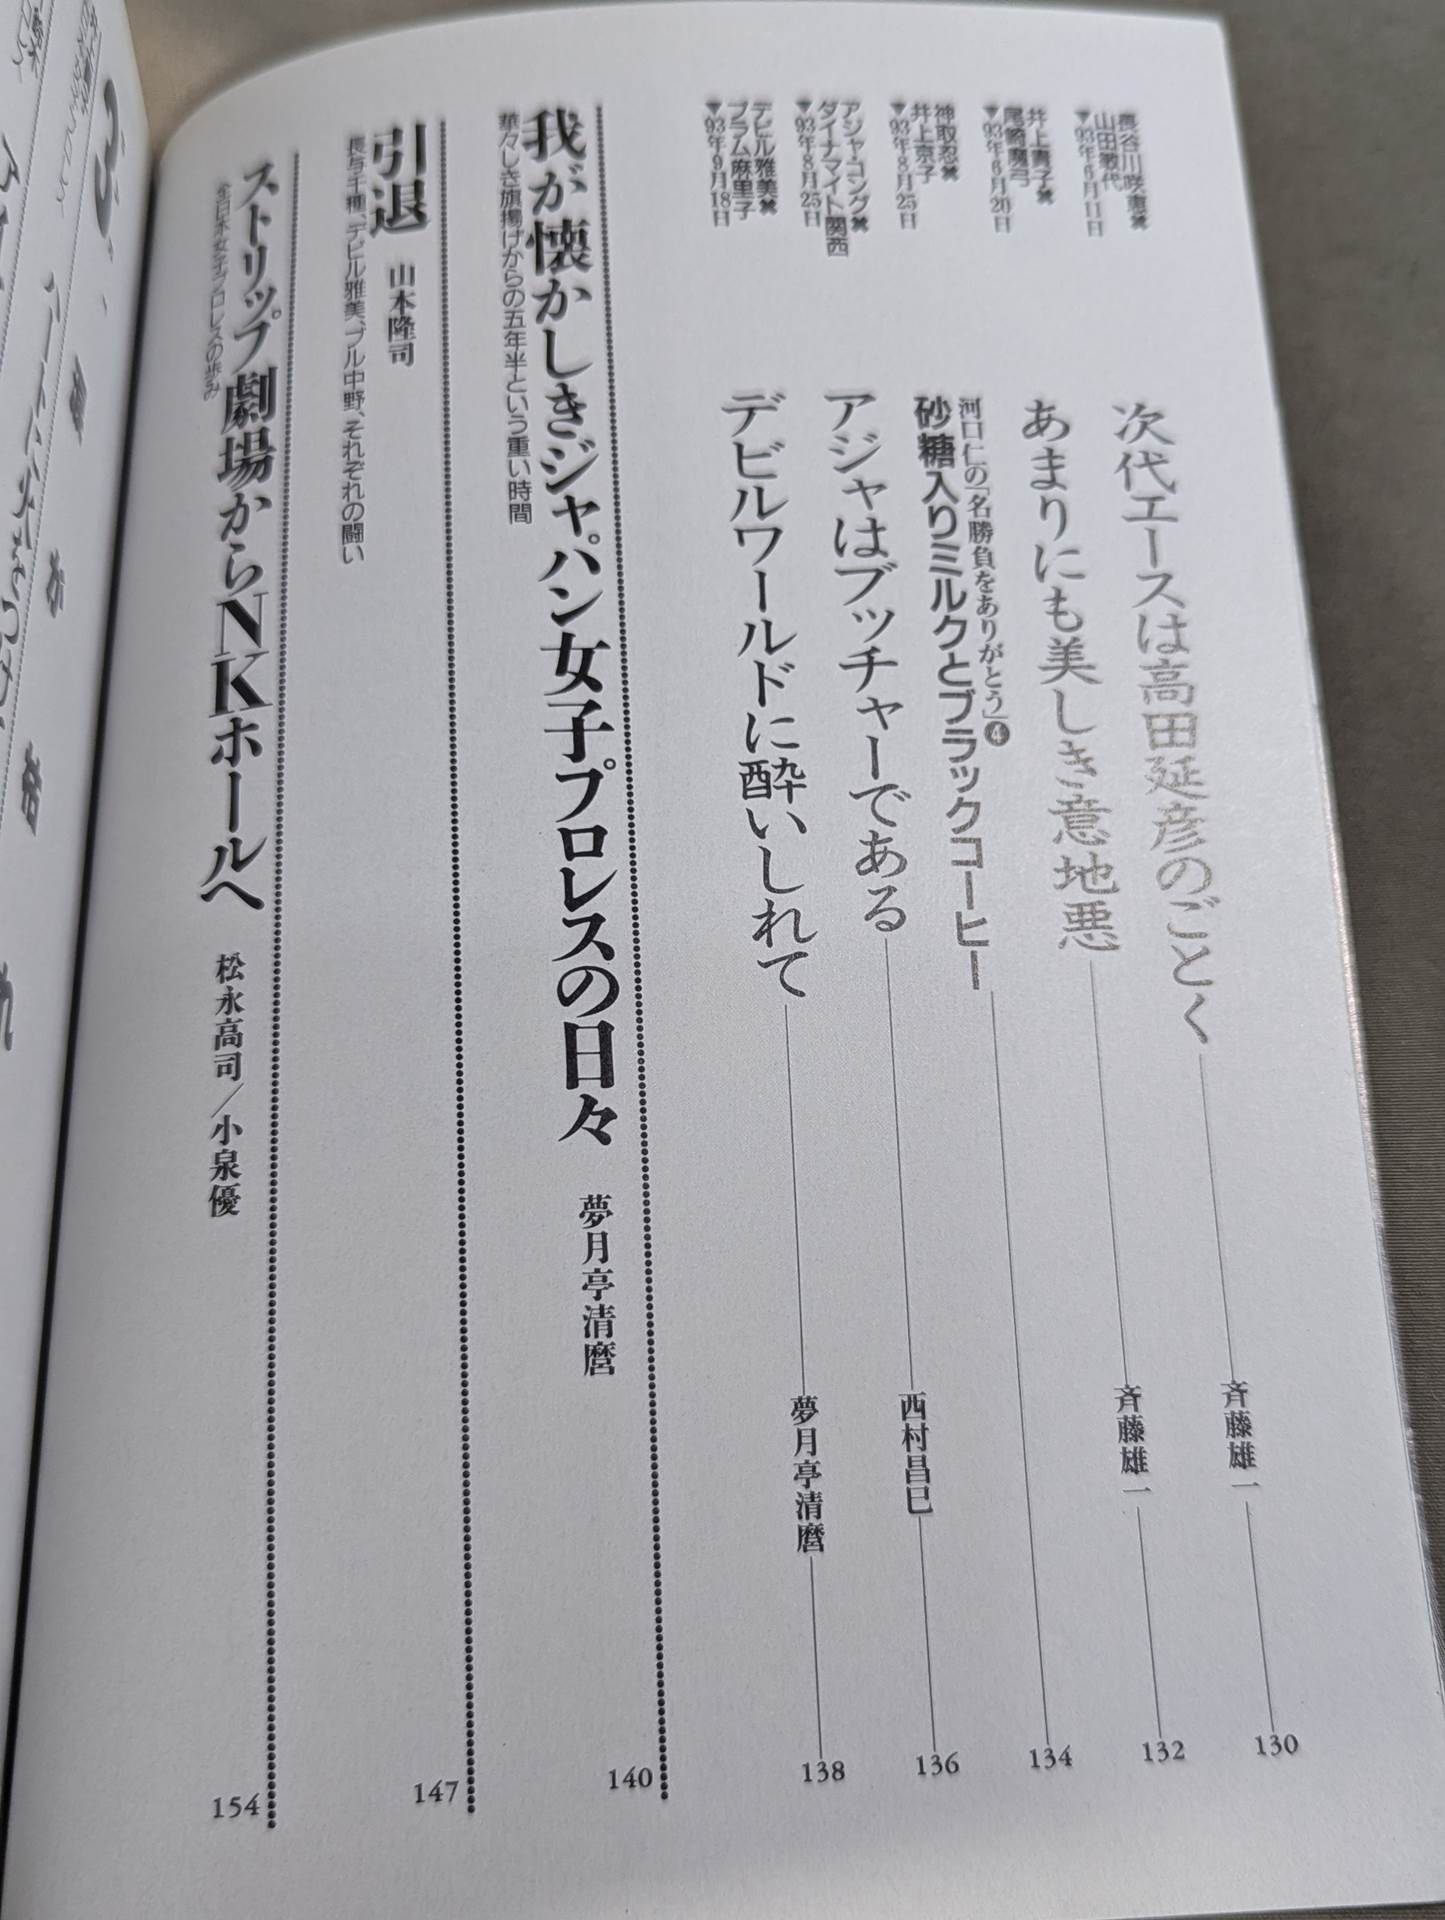 長谷川咲恵✖
山田敏代
▼93年6月11日
次代エースは高田延彦のごとく
斉藤雄一
130
井上貴子✖
尾崎魔弓
▼93年6月20日
あまりにも美しき意地悪
斉藤雄一
132
神取忍✖
井上京子
▼93年8月25日
河口仁の「名勝負をありがとう」❹
砂糖入りミルクとブラックコーヒー
134
アジャ・コング✖
ダイナマイト関西
▼93年8月25日
アジャはブッチャーである
西村昌巳
136
デビル雅美✖
プラム麻里子
▼93年9月18日
デビルワールドに酔いしれて
夢月亭清麿
138
我が懐かしきジャパン女子プロレスの日々
夢月亭清麿
華々しき旗揚げからの五年半という重い時間
140
引退
山本隆司
長与千種、デビル雅美、ブル中野、それぞれの闘い
147
ストリップ劇場からNKホールへ
松永高司／小泉優
全日本女子プロレスの歩み
154